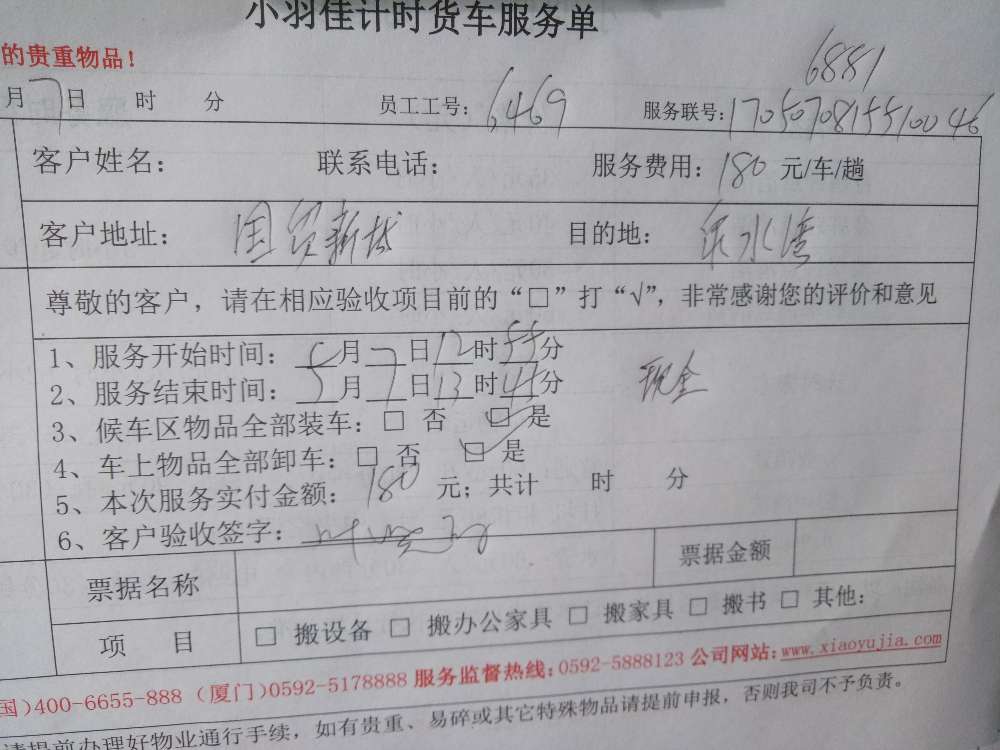 小羽佳计时货车服务单
的贵重物品!
6881
月 7 日 时 分 员工工号: 6469 服务联号: 1705070815510046
客户姓名: 联系电话: 服务费用: 180 元/车/趟
客户地址: 国贸新城 目的地: 泉水湾
尊敬的客户，请在相应验收项目前的“□”打“√”，非常感谢您的评价和意见
1、服务开始时间: 5月7日12时55分
2、服务结束时间: 5月7日13时45分 现金
3、候车区物品全部装车: □ 否 ☑ 是
4、车上物品全部卸车: □ 否 ☑ 是
5、本次服务实付金额: 180 元; 共计 时 分
6、客户验收签字:
票据名称 票据金额
项 目 □ 搬设备 □ 搬办公家具 □ 搬家具 □ 搬书 □ 其他:
国)400-6655-888 (厦门)0592-5178888 服务监督热线: 0592-5888123 公司网站: www.xiaoyujia.com
请提前办理好物业通行手续，如有贵重、易碎或其它特殊物品请提前申报，否则我司不予负责。